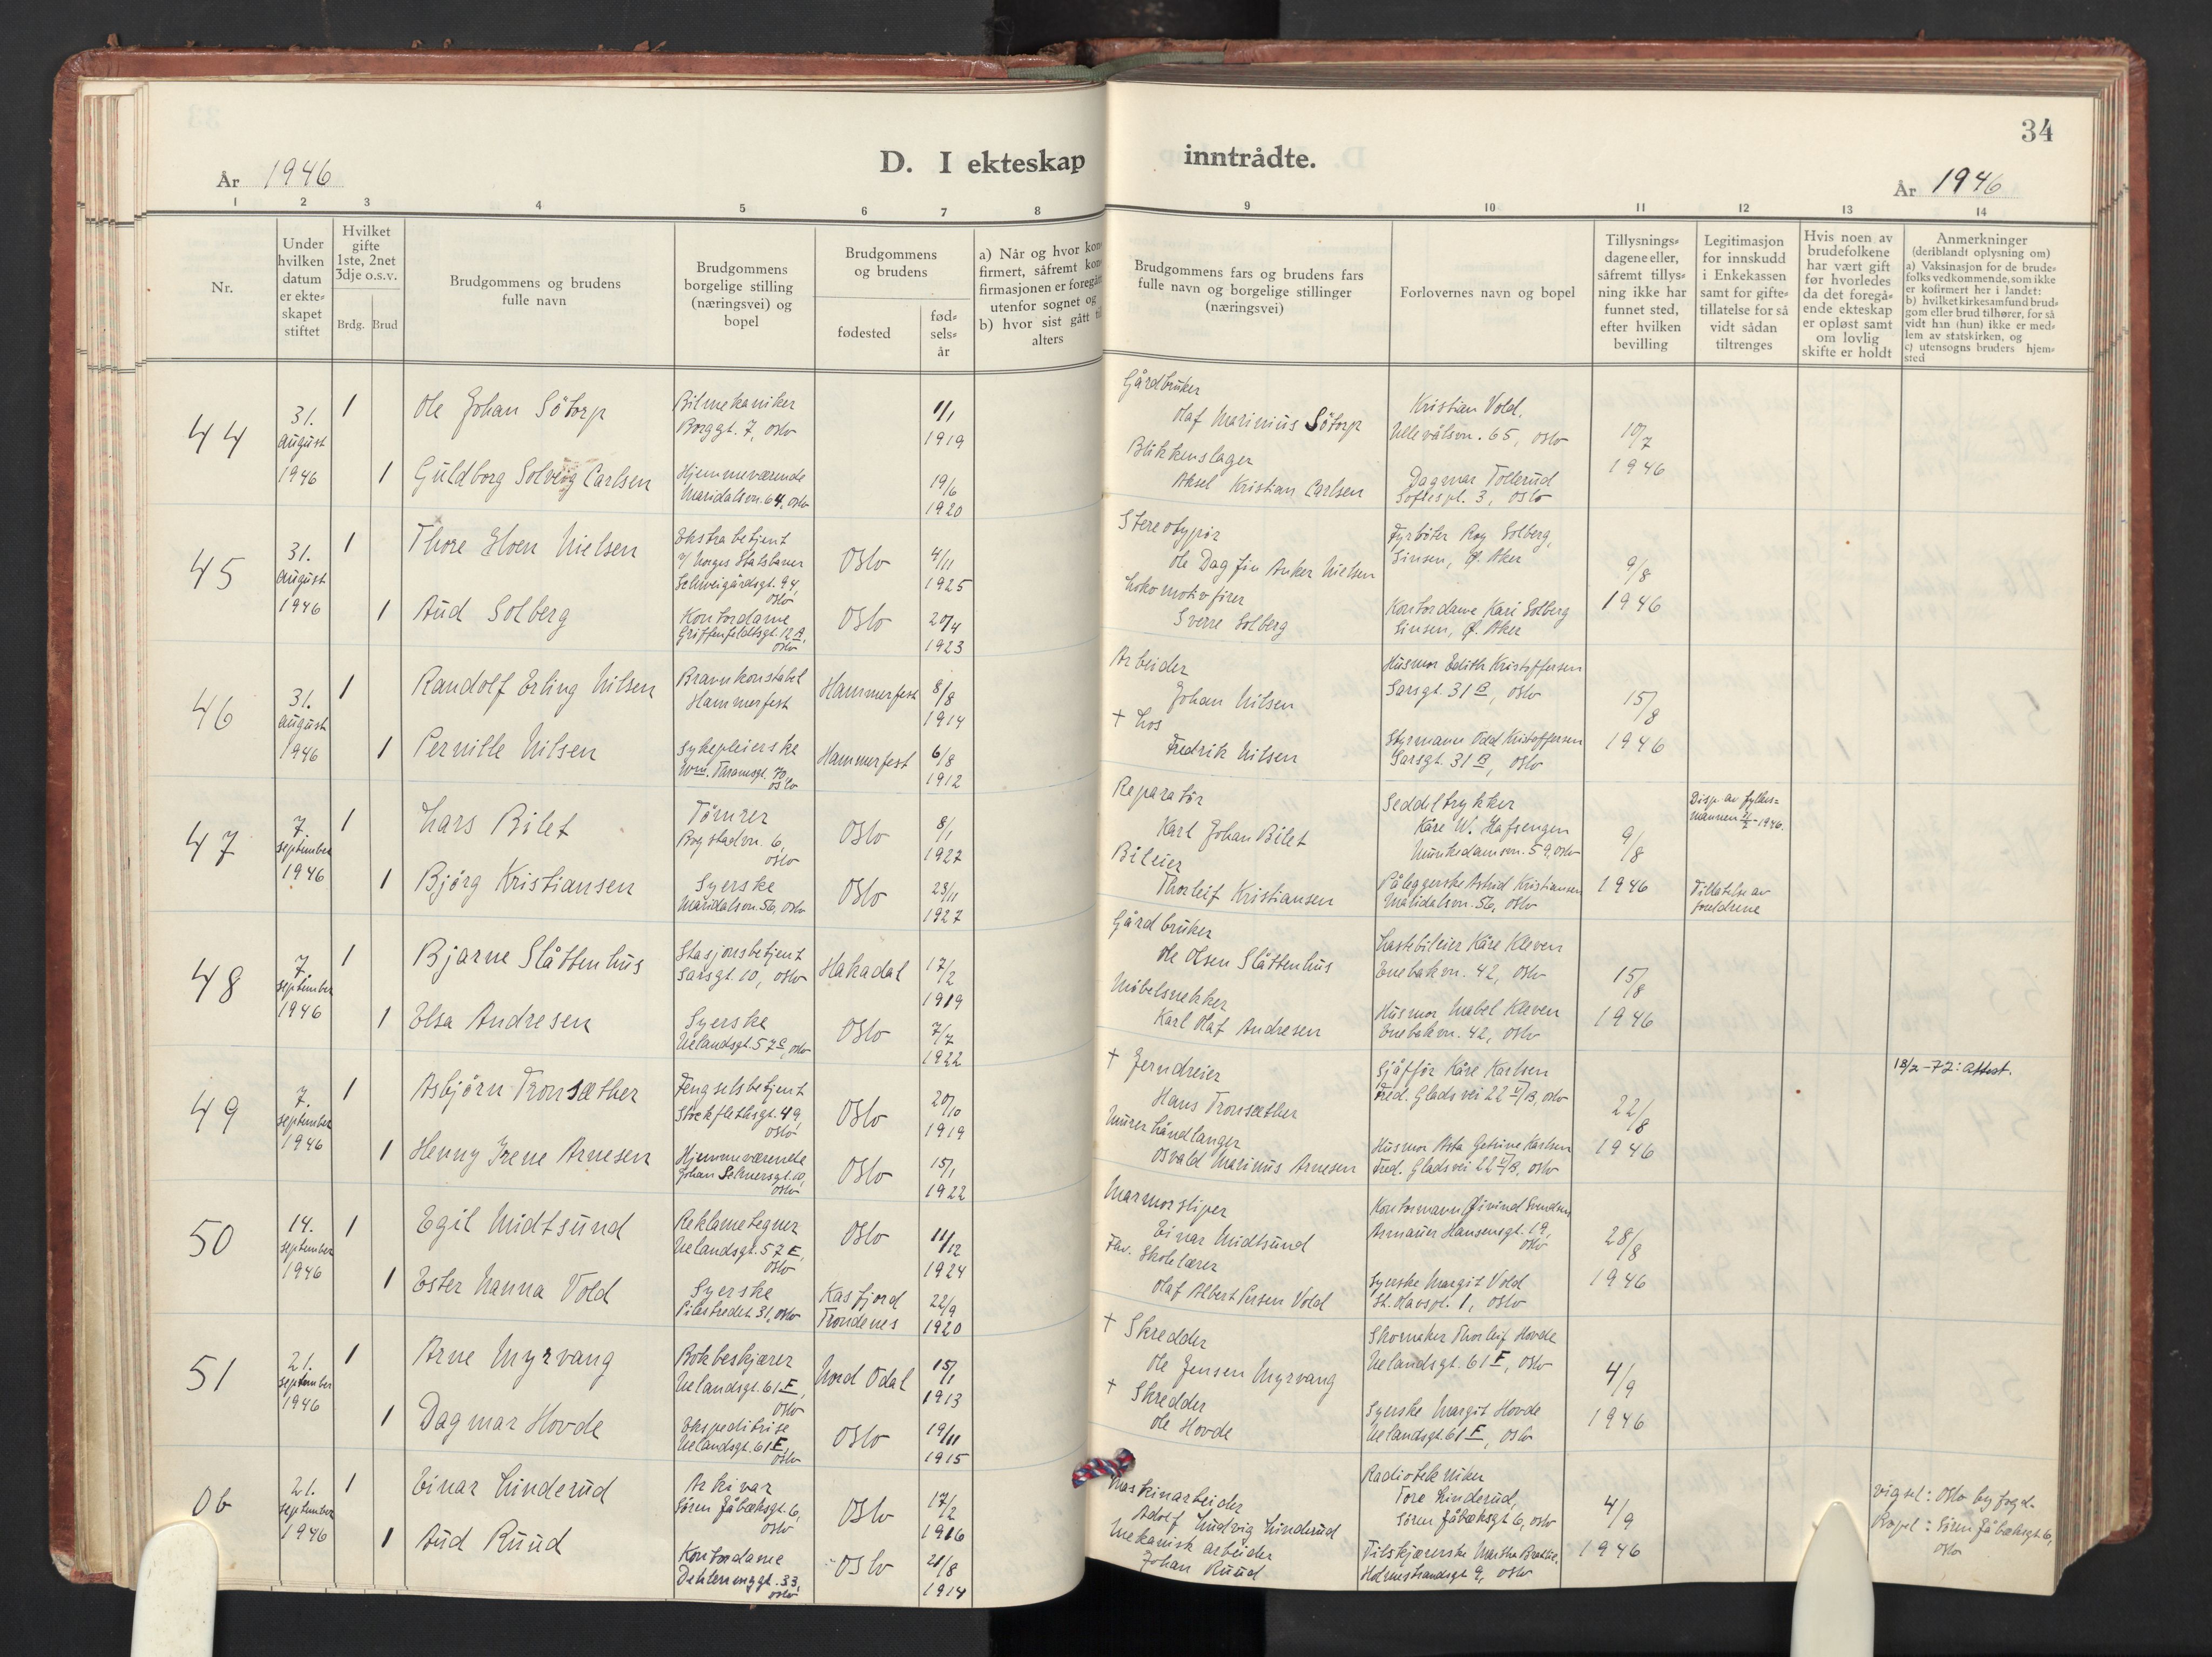 34
D. I ekteskap inntrådte.
År 1946
År 1946
1 2 3 4 5 6 7 8 9 10 11 12 13 14
Nr.
Under
hvilken
datum
er ekte=
skapet
stiftet
Hvilket
gifte
1ste, 2net
3dje o.s.v.
Brdg. Brud
Brudgommens og brudens
fulle navn
Brudgommens
borgelige stilling
(næringsvei) og
bopel
Brudgommens
og brudens
fødested
fød=
sels=
år
a) Når og hvor kon=
firmert, såfremt kon=
firmasjonen er foregått
utenfor sognet og
b) hvor sist gått til
alters
Brudgommens fars og brudens fars
fulle navn og borgelige stillinger
(næringsvei)
Forlovernes navn og bopel
Tillysnings=
dagene eller,
såfremt tillys=
ning ikke har
funnet sted,
efter hvilken
bevilling
Legitimasjon
for innskudd
i Enkekassen
samt for gifte=
tillatelse for så
vidt sådan
tiltrenges
Hvis noen av
brudefolkene
har vært gift
før hvorledes
da det foregå=
ende ekteskap
er opløst samt
om lovlig
skifte er holdt
Anmerkninger
(deriblandt oplysning om)
a) Vaksinasjon for de brude=
folks vedkommende, som ikke
er kofirmert her i landet:
b) hvilket kirkesamfund brud=
gom eller brud tilhører, for så
vidt han (hun) ikke er med=
lem av statskirken, og
c) utensogns bruders hjem=
sted
44
31.
august
1946
1
Ole Johan Sötorp
Bilmekaniker
Borggt. 7, Oslo
1/1
1919
Gårdbruker
Olaf Marinius Sötorp
Kristian Vold,
Ullevålsvn. 65, Oslo
10/7
1946
1
Guldborg Solveig Carlsen
Hjemmeværende
Maridalsvn. 64, Oslo
19/6
1920
Blikkenslager
Aksel Kristian Carlsen
Dagmar Tollerud
Softiespl. 3, Oslo
45
31.
august
1946
1
Thore Hoen Nielsen
Ekstrabetjent
v/ Norges Statsbaner
Schweigårdsgt. 94,
Oslo
Oslo
4/11
1925
Stereotypør
Ole Dagfin Anker Nielsen
Fyrbøter Roy Solberg,
Sinsen, Ø. Aker
9/8
1946
1
Aud Solberg
Kontordame
Griffenfeldtsgt. 12 A,
Oslo
Oslo
20/4
1923
Lokomotivfører
Sverre Solberg
Kontordame Kari Solberg
Sinsen, Ø. Aker
46
31.
august
1946
1
Randolf Erling Nilsen
Brannkonstabel
Hammerfest
Hammerfest
8/8
1914
Arbeider
Johan Nilsen
Husmor Edith Kristoffersen
Sarsgt. 31 B, Oslo
15/8
1946
1
Pernille Nilsen
Sykepleierske
Wm. Thranesgt. 70,
Oslo
Hammerfest
6/8
1912
† Los
Fredrik Nilsen
Styrmann Odd Kristoffersen
Sarsgt. 31 B, Oslo
47
7.
september
1946
1
Lars Bilet
Tömrer
Bogstadvn. 6,
Oslo
Oslo
8/1
1927
Reparatör
Karl Johan Bilet
Seddeltrykker
Kåre W. Hafsengen
Munkedamsvn. 59, Oslo
9/8
1946
Disp. av fylkes=
mannen - 1946.
1
Björg Kristiansen
Syerske
Maridalsvn. 56, Oslo
Oslo
23/11
1927
Bileier
Thorleif Kristiansen
Påleggerske Astrid Kristiansen
Maridalsvn. 56, Oslo
Tillatelse av
foreldrene
48
7.
september
1946
1
Bjarne Slåttenhus
Stasjonsbetjent
Sarsgt. 10, Oslo
Hakadal
17/2
1919
Gårdbruker
Ole Olsen Slåttenhus
Lastebileier Kåre Kleven
Enebakvn. 42, Oslo
15/8
1946
1
Elsa Andresen
Syerske
Uelandsgt. 57 C, Oslo
Oslo
7/7
1922
Möbelsnekker
Karl Olaf Andresen
Husmor Mabel Kleven
Enebakvn. 42, Oslo
49
7.
september
1946
1
Asbjörn Tronsæther
Fengselsbetjent
Stockflethsgt. 49,
Oslo
Oslo
20/10
1919
† Jerndreier
Hans Tronsæther
Sjåfför Kåre Karlsen
Fred. Glads vei 22 II/B, Oslo
22/8
1946
18/2-72: Attest.
1
Henny Irene Arnesen
Hjemmeværende
Johan Selmersgt. 10,
Oslo
Oslo
15/1
1922
Murerhåndlanger
Osvald Marinus Arnesen
Husmor Asta Getrine Karlsen
Fred. Glads vei 22 II/B, Oslo
50
14.
september
1946
1
Egil Midtsund
Reklametegner
Uelandsgt. 57 E,
Oslo
Oslo
11/12
1924
Marmorsliper
Einar Midtsund
Kontormann Øivind Svendsen
Armauer Hansensgt. 19,
Oslo
28/8
1946
1
Ester Nanna Vold
Syerske
Pilestredet 31, Oslo
Kasfjord
Trondenes
22/9
1920
Fhv. Skolelærer
Olaf Albert Persen Vold
Syerske Margit Vold
St. Olavspl. 1, Oslo
51
21.
september
1946
1
Arne Myrvang
Bokbeskjærer
Uelandsgt. 61 F,
Oslo
Nord Odal
15/1
1913
† Skredder
Ole Jensen Myrvang
Skomaker Thorleif Hovde
Uelandsgt. 61 F, Oslo
4/9
1946
1
Dagmar Hovde
Ekspeditrise
Uelandsgt. 61 F,
Oslo
Oslo
19/11
1915
† Skredder
Ole Hovde
Syerske Margit Hovde
Uelandsgt. 61 F, Oslo
0b
21.
september
1946
1
Einar Linderud
Arkivar
Sören Jåbæksgt. 6,
Oslo
Oslo
17/2
1916
Maskinarbeider
Adolf Ludvig Linderud
Radiotekniker
Tore Linderud,
Sören Jåbæksgt. 6, Oslo
4/9
1946
Vigsel: Oslo byfogd.
Bopel: Sören Jåbæksgt. 6,
Oslo
1
Aud Ruud
Kontordame
Dehlenenggt. 33,
Oslo
Oslo
21/8
1914
Mekanisk arbeider
Johan Ruud
Tilskjærerske Martha Brekke,
Holmestrandsgt. 9, Oslo